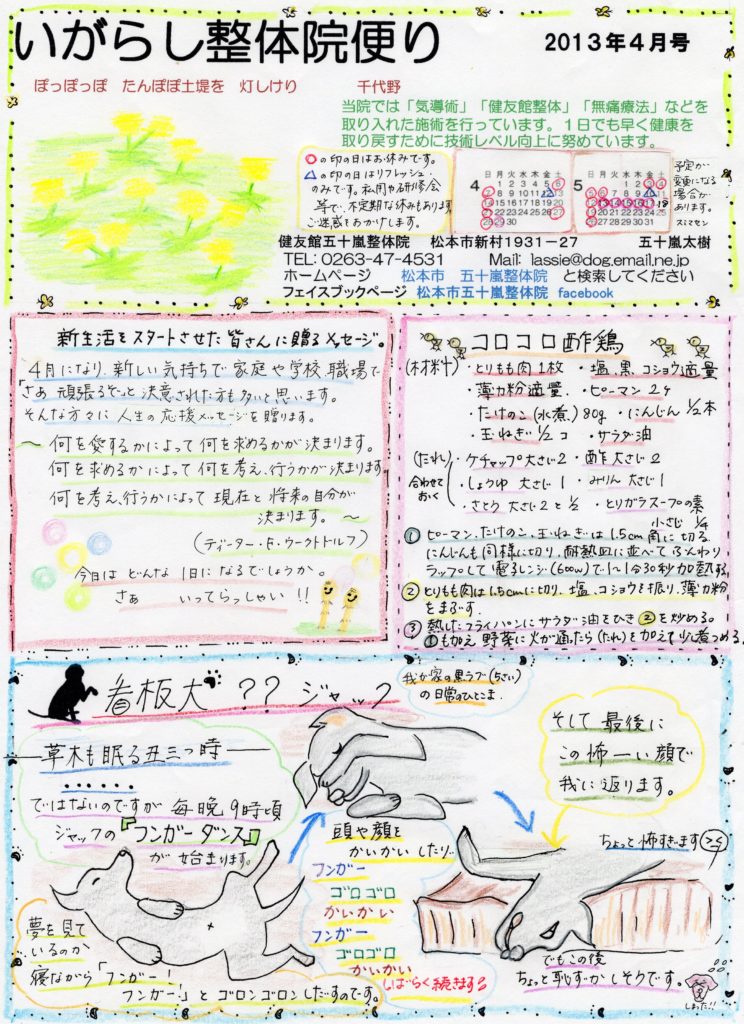 いがらし整体院便り
2013年4月号
ぽっぽっぽ　たんぽぽ土堤を　灯しけり　　千代野
当院では「気導術」「健友館整体」「無痛療法」などを
取り入れた施術を行っています。1日でも早く健康を
取り戻すために技術レベル向上に努めています。
○の印の日はお休みです。
△の印の日はリフレッシュ
のみです。私用や研修会
等で、不定期な休みもあります
ご迷惑をおかけします。
4
日月火水木金土
1 2 3 4 5 6
7 8 9 10 11 12 13
14 15 16 17 18 19 20
21 22 23 24 25 26 27
28 29 30
5
日月火水木金土
1 2 3 4
5 6 7 8 9 10 11
12 13 14 15 16 17 18
19 20 21 22 23 24 25
26 27 28 29 30 31
予定が
変更になる
場合が
あります。
スミマセン
健友館五十嵐整体院　松本市新村1931－27　　五十嵐太樹
TEL: 0263-47-4531　Mail: lassie@dog.email.ne.jp
ホームページ　松本市　五十嵐整体院　と検索してください
フェイスブックページ　松本市五十嵐整体院　facebook
新生活をスタートさせた皆さんに贈るメッセージ。
4月になり、新しい気持ちで家庭や学校、職場で
「さぁ 頑張るぞ~っと決意された方も多いと思います。
そんな方々に人生の応援メッセージを贈ります。
～ 何を愛するかによって何を求めるかが決まります。
何を求めるかによって何を考え、行うかが決まります。
何を考え、行うかによって現在と将来の自分が
決まります。～
(ディーター・F・ウークトドルフ)
今日はどんな1日になるでしょうか。
さぁ　いってらっしゃい!!
コロコロ酢鶏
(材料)・とりもも肉1枚　・塩、黒コショウ適量
・薄力粉適量　・ピーマン2ケ
・たけのこ(水煮)80g　・にんじん1/2本
・玉ねぎ1/2コ　・サラダ油
(たれ)・ケチャップ大さじ2　・酢大さじ2
合わせておく　・しょうゆ大さじ1　・みりん大さじ1
・さとう大さじ2と1/2　・とりガラスープの素
小さじ1/4
① ピーマン、たけのこ、玉ねぎは1.5cm角に切る
にんじんも同様に切り、耐熱皿に並べてふんわり
ラップして電子レンジ(600w)で1～1分30秒加熱する。
② とりもも肉は1.5cmに切り、塩、コショウを振り、薄力粉
をまぶす。
③ 熱したフライパンにサラダ油をひき②を炒める。
①も加え野菜に火が通ったら(たれ)を加えて少し煮つめる。
看板犬??ジャック
我が家の黒ラブ(5さい)
の日常のひとこま.
草木も眠る丑三つ時
・・・・・・
ではないのですが毎晩9時頃
ジャックの『フンガーダンス』
が始まります。
頭や顔を
かいかいしたり‥
フンガー
ゴロゴロ
かいかい
フンガー
ゴロゴロ
かいかい
しばらく続きます
そして最後に
この怖ーい顔で
我に返ります。
ちょっと怖すぎます
夢を見て
いるのか
寝ながら「フンガー!
フンガー」とゴロンゴロンしだすのです。
でもこの後
ちょっと恥ずかしそうです。
しまった!!